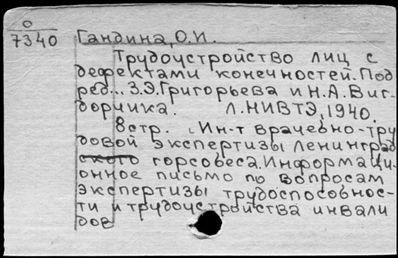 О
7340
Гандина, О.И.
Трудоустройство лиц с
дефектами конечностей. Под
ред... З.Э.Григорьева и Н.А.Виг-
дорчика. Л.НИВТЭ,1940.
8стр. Ин-т врачебно-тру
довой экспертизы Ленинград
ского горсовеса. Информаци-
онное письмо по вопросам
экспертизы трудоспособнос-
ти и трудоустройства инвали
дов